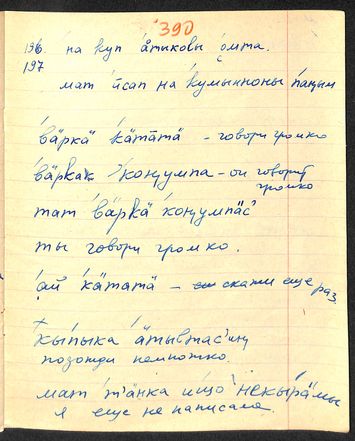 390
196. на куп а́тыковы о́мта.
197
мат и́сап на ку́мынноны па́ңын
ва́ркӓ кӓ́тӓтӓ – говори громко
ва́ркаӄ коңу́мпа – он говорит
громко
тат ва́ркӓ коңу́мпӓс̌
ты говори громко.
о́й кӓ́татӓ – скажи еще раз.
кы́пыка ӓ́тывтӓс̌иң
подожди немножко.
мат та́нка ищо́ не́кырӓмы
я еще не написала.